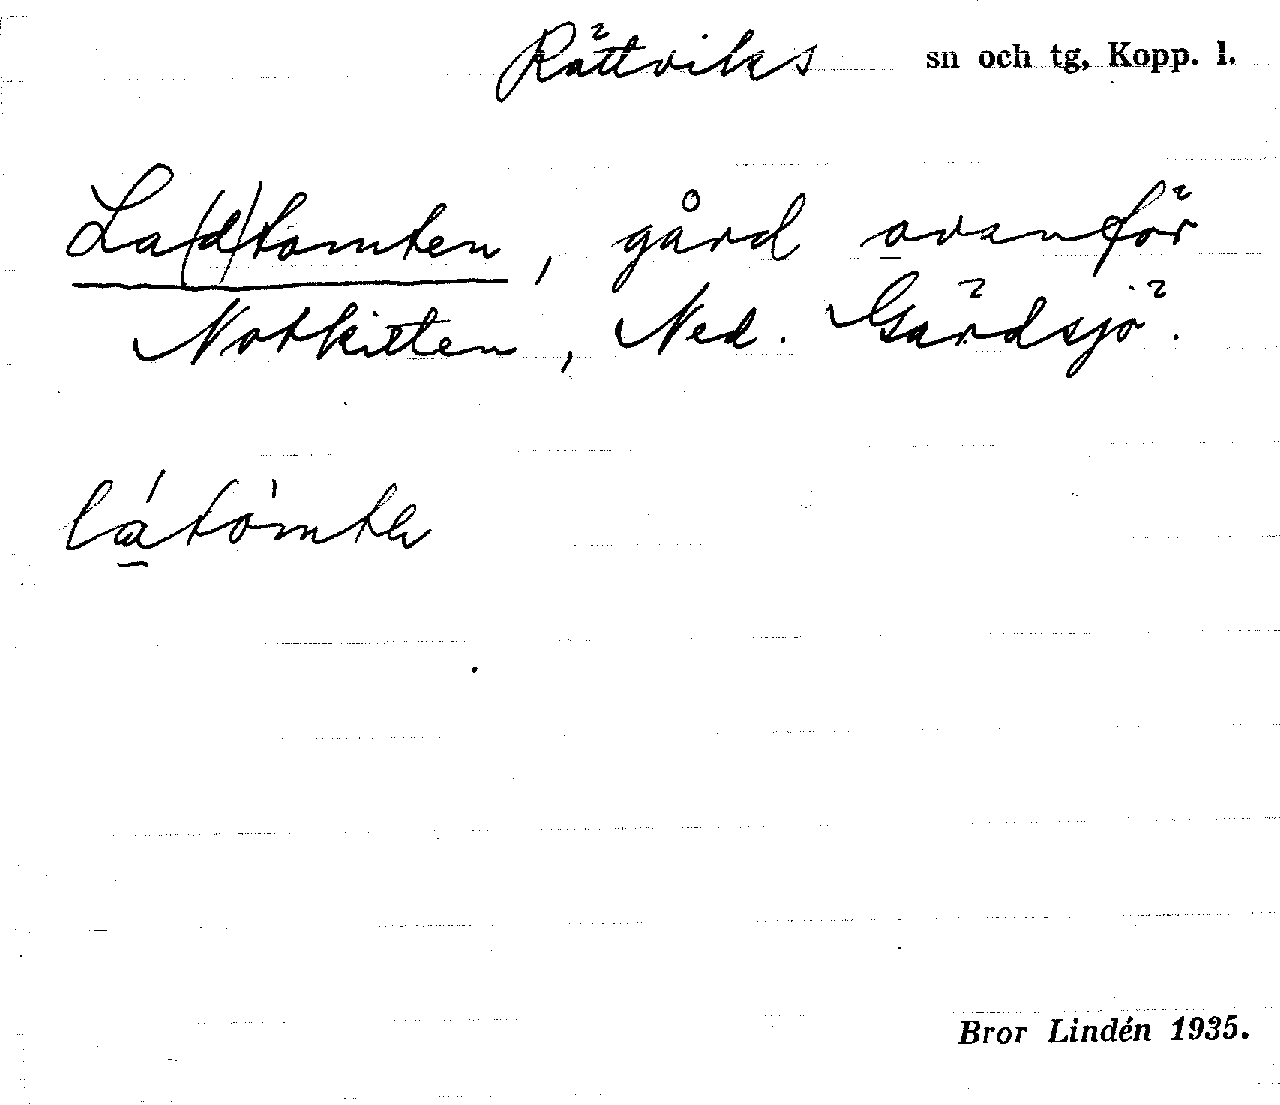 Rättviks sn och tg, Kopp. l.
La(d)tomten, gård ovanför
Notkitten, Ned. Gärdsjö.
látòmtn
Bror Lindén 1935.